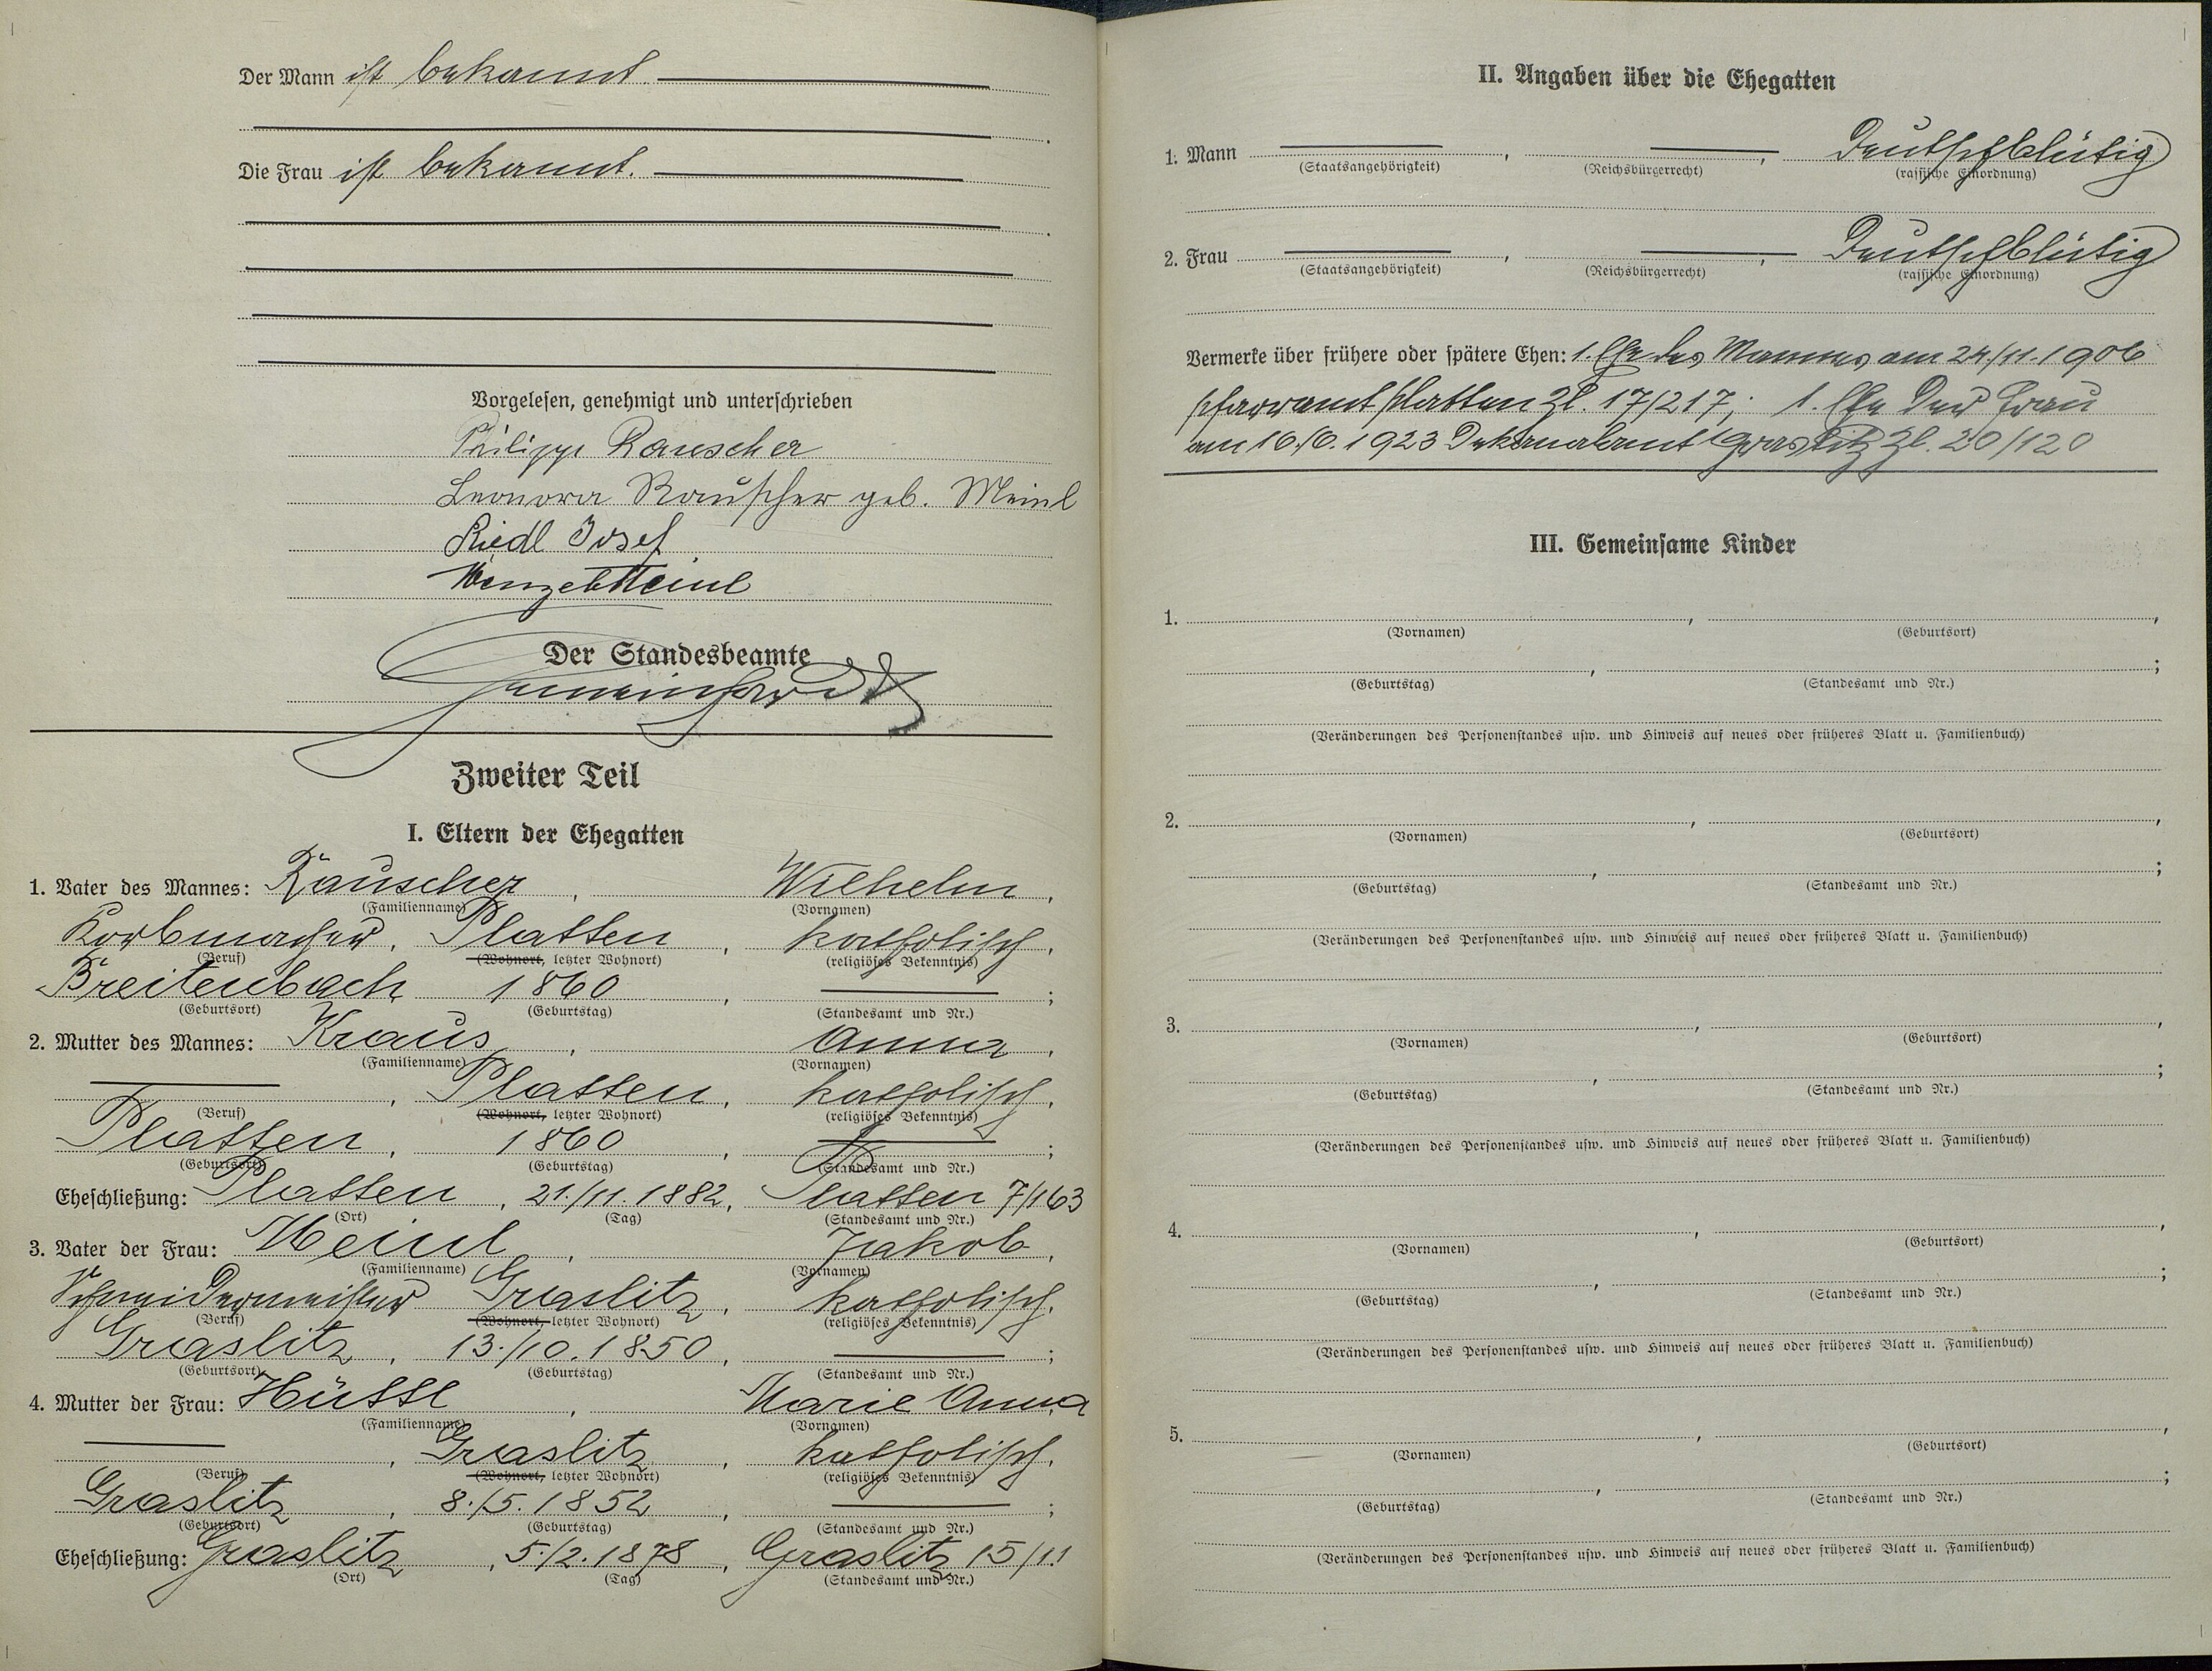 Der Mann ist bekannt.
Die Frau ist bekannt.
Vorgelesen, genehmigt und unterschrieben
Philipp Rauscher
Leonora Rauscher geb. Meinl
Riedl Josef
Wenzel Meinl
Der Standesbeamte
Zweiter Teil
I. Eltern der Ehegatten
1. Vater des Mannes: Rauscher, Wilhelm,
(Familienname) (Vornamen)
Korbmacher, Platten, katholisch,
(Beruf) (Wohnort, letzter Wohnort) (religiöses Bekenntnis)
Breitenbach 1860, ;
(Geburtsort) (Geburtstag) (Standesamt und Nr.)
2. Mutter des Mannes: Kraus, Anna,
(Familienname) (Vornamen)
, Platten, katholisch,
(Beruf) (Wohnort, letzter Wohnort) (religiöses Bekenntnis)
Platten, 1860, ;
(Geburtsort) (Geburtstag) (Standesamt und Nr.)
Eheschließung: Platten, 21./11.1882, Platten 7/163
(Ort) (Tag) (Standesamt und Nr.)
3. Vater der Frau: Meinl, Jakob,
(Familienname) (Vornamen)
Schneidermeister Graslitz, katholisch,
(Beruf) (Wohnort, letzter Wohnort) (religiöses Bekenntnis)
Graslitz, 13./10.1850, ;
(Geburtsort) (Geburtstag) (Standesamt und Nr.)
4. Mutter der Frau: Hüttl, Marie Anna,
(Familienname) (Vornamen)
, Graslitz, katholisch,
(Beruf) (Wohnort, letzter Wohnort) (religiöses Bekenntnis)
Graslitz, 8./5.1852, ;
(Geburtsort) (Geburtstag) (Standesamt und Nr.)
Eheschließung: Graslitz, 5./2.1878, Graslitz 15/11
(Ort) (Tag) (Standesamt und Nr.)
II. Angaben über die Ehegatten
1. Mann , , Deutschblütig
(Staatsangehörigkeit) (Reichsbürgerrecht) (rassische Einordnung)
2. Frau , , Deutschblütig
(Staatsangehörigkeit) (Reichsbürgerrecht) (rassische Einordnung)
Vermerke über frühere oder spätere Ehen: 1. Ehe des Mannes am 24./11.1906
Pfarramt Platten Zl. 17/217; 1. Ehe der Frau
am 16./6.1923 Dekanalamt Graslitz Zl. 20/120
III. Gemeinsame Kinder
1. , ,
(Vornamen) (Geburtsort)
, ;
(Geburtstag) (Standesamt und Nr.)
(Veränderungen des Personenstandes usw. und Hinweis auf neues oder früheres Blatt u. Familienbuch)
2. , ,
(Vornamen) (Geburtsort)
, ;
(Geburtstag) (Standesamt und Nr.)
(Veränderungen des Personenstandes usw. und Hinweis auf neues oder früheres Blatt u. Familienbuch)
3. , ,
(Vornamen) (Geburtsort)
, ;
(Geburtstag) (Standesamt und Nr.)
(Veränderungen des Personenstandes usw. und Hinweis auf neues oder früheres Blatt u. Familienbuch)
4. , ,
(Vornamen) (Geburtsort)
, ;
(Geburtstag) (Standesamt und Nr.)
(Veränderungen des Personenstandes usw. und Hinweis auf neues oder früheres Blatt u. Familienbuch)
5. , ,
(Vornamen) (Geburtsort)
, ;
(Geburtstag) (Standesamt und Nr.)
(Veränderungen des Personenstandes usw. und Hinweis auf neues oder früheres Blatt u. Familienbuch)